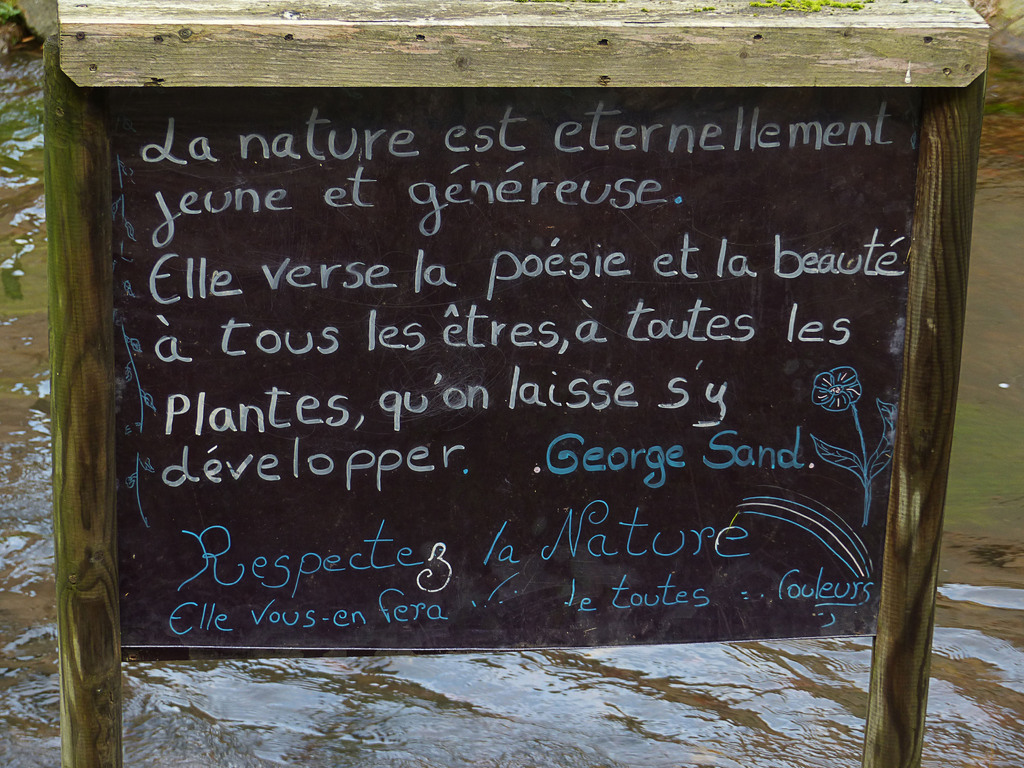 La nature est eternellement
jeune et généreuse.
Elle verse la poésie et la beauté
à tous les êtres, à toutes les
Plantes, qu'on laisse s'y
développer. .George Sand.
Respectez la Nature
Elle vous-en fera ... de toutes ... Couleurs